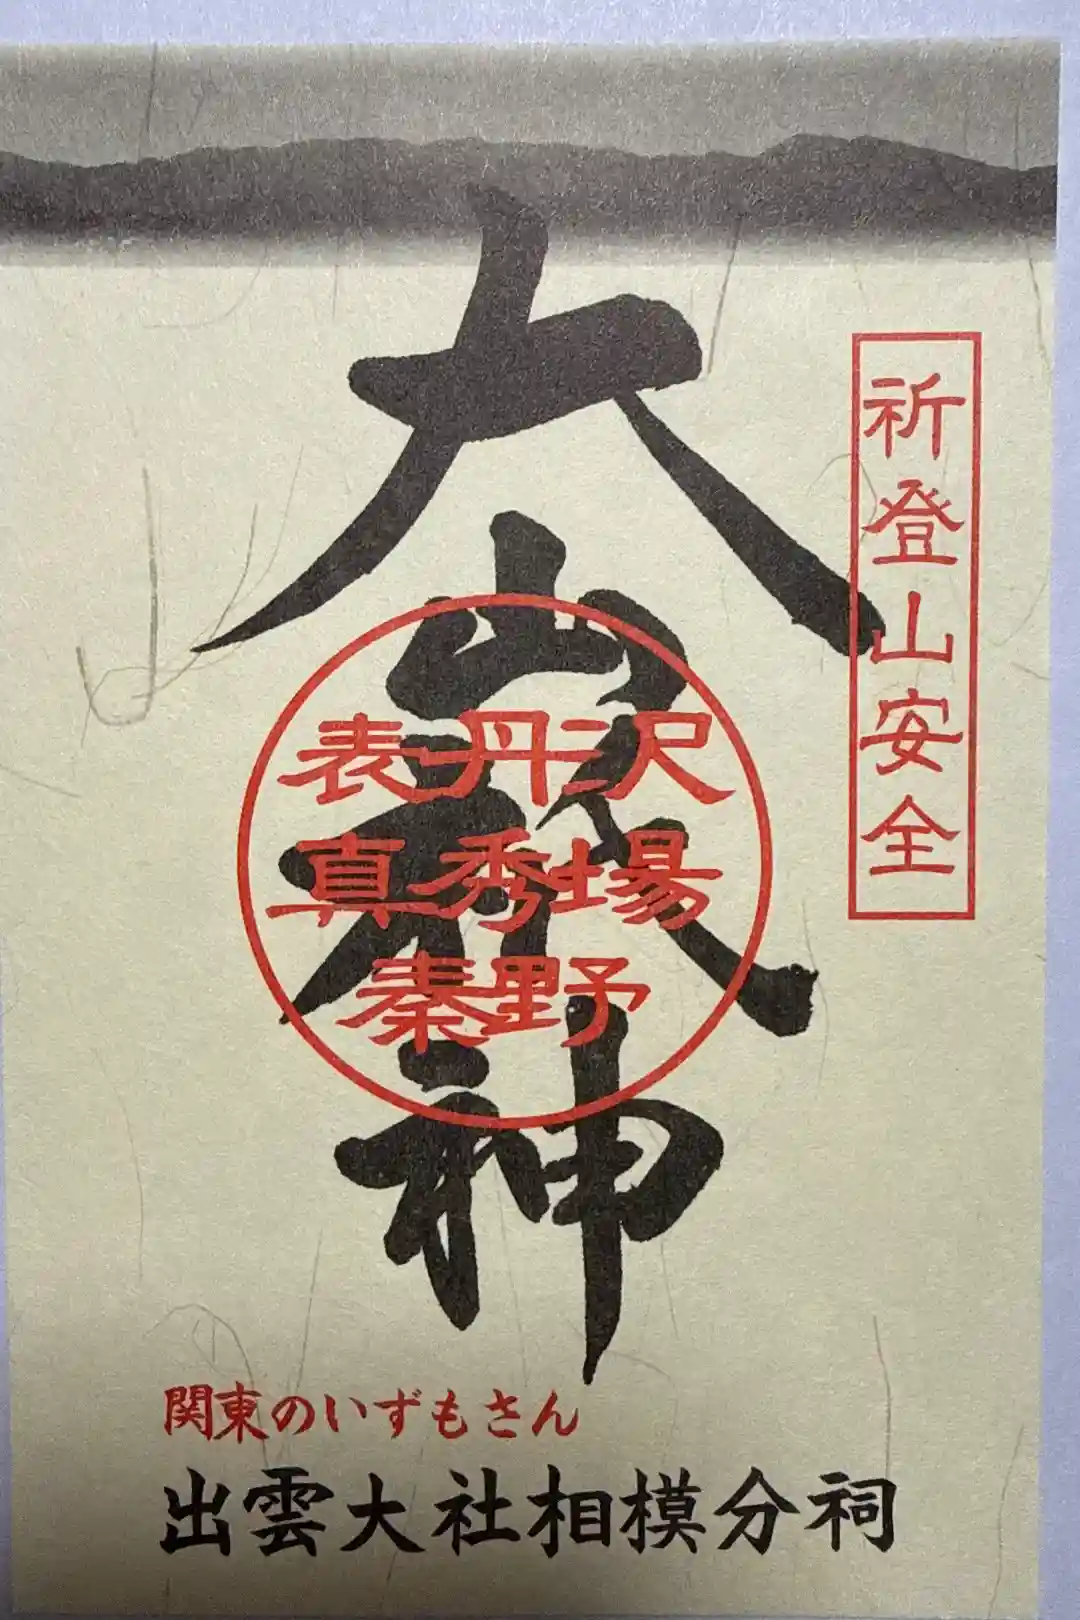 祈登山安全
大山祇神
表丹沢
真秀場
秦野
関東のいずもさん
出雲大社相模分祠